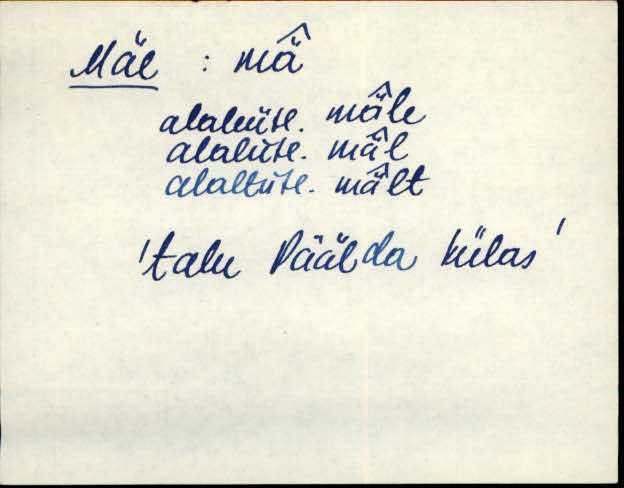 Mäe : mä̂
alaleütl. mä̂le
alalütl. mä̂l
alaltütl. mä̂lt
'talu Päälda külas'